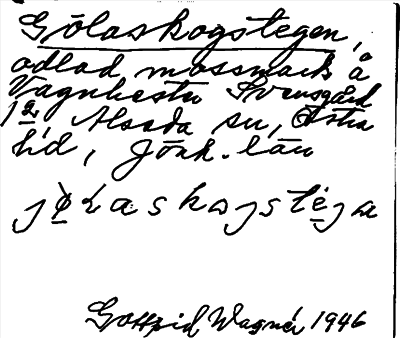 Gölaskogstegen,
odlad mossmark å
Vagnhester Svensgård
1 2/ Alseda sn, Östra
hd, Jönk. län
Gottfrid Wagnér 1946